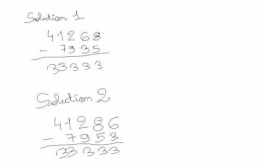 Solution 1
41268
- 7935
33333
Solution 2
41286
- 7953
33333